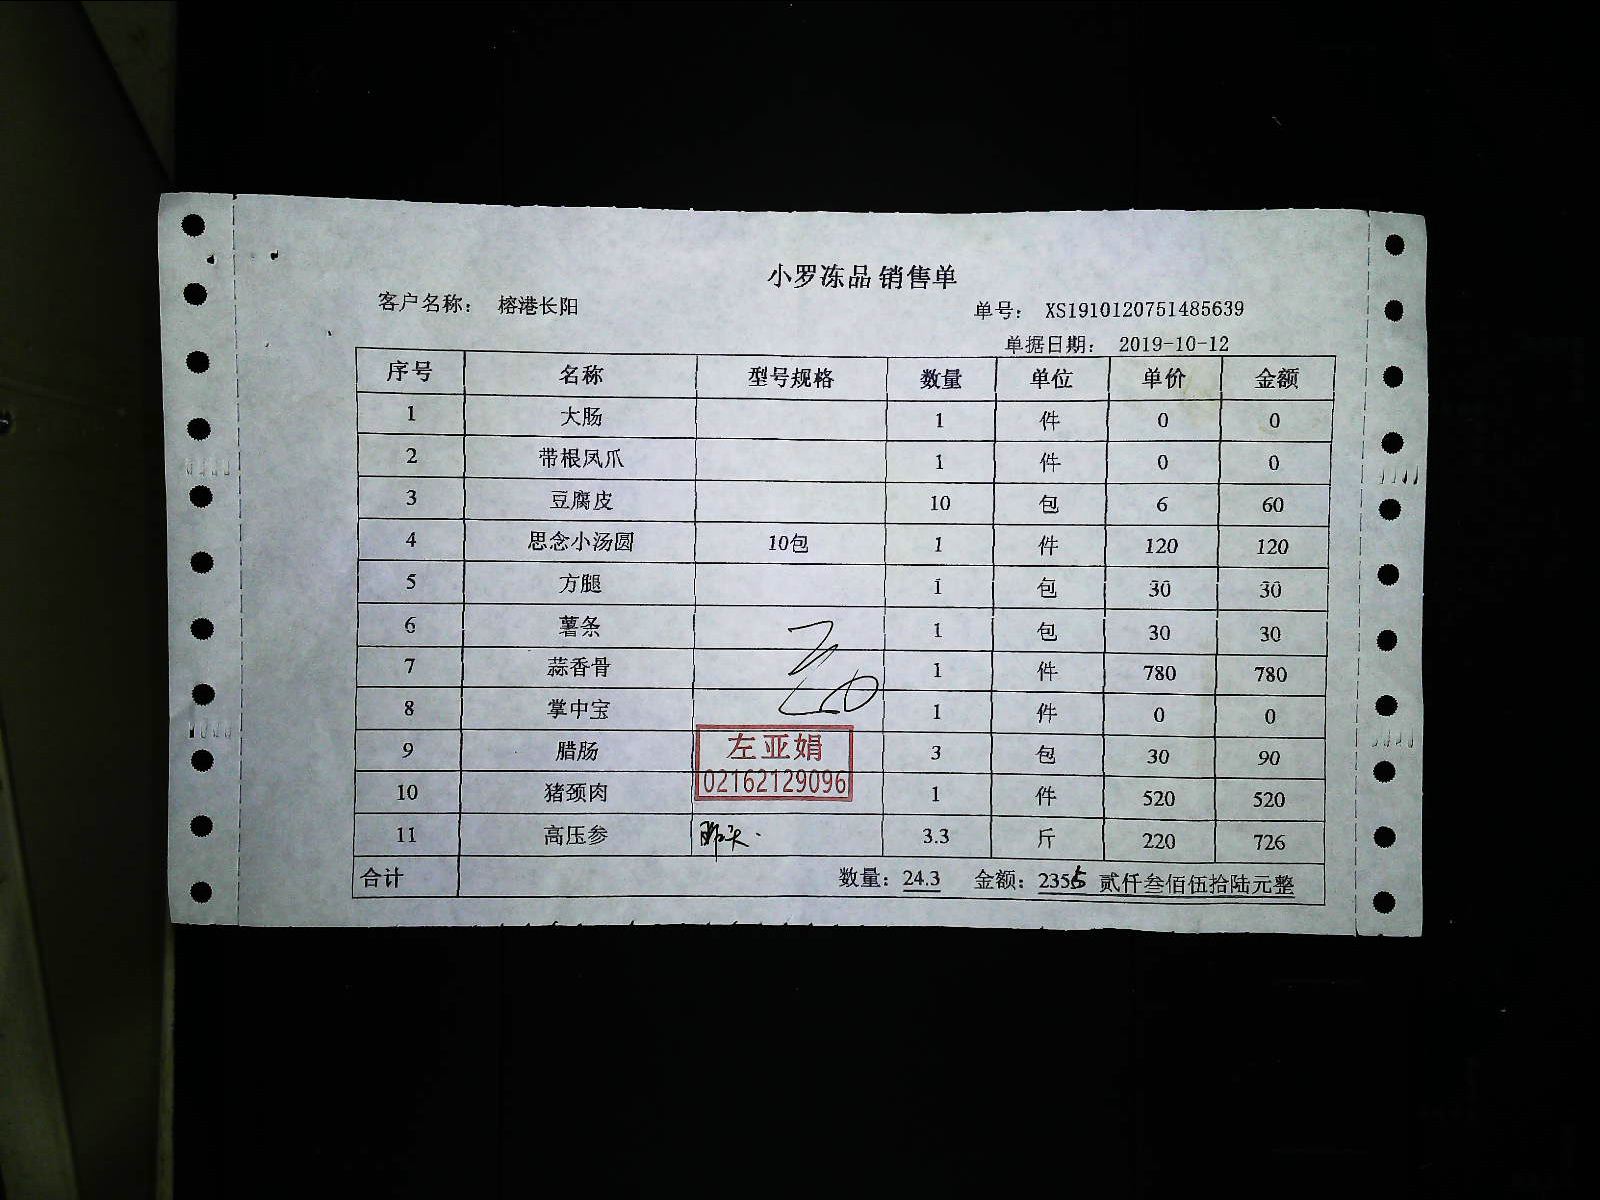 小罗冻品 销售单
客户名称: 榕港长阳 单号: XS1910120751485639
单据日期: 2019-10-12
序号 名称 型号规格 数量 单位 单价 金额
1 大肠 1 件 0 0
2 带根凤爪 1 件 0 0
3 豆腐皮 10 包 6 60
4 思念小汤圆 10包 1 件 120 120
5 方腿 1 包 30 30
6 薯条 1 包 30 30
7 蒜香骨 1 件 780 780
8 掌中宝 1 件 0 0
9 腊肠 3 包 30 90
左亚娟
02162129096
10 猪颈肉 1 件 520 520
11 高压参 3.3 斤 220 726
合计 数量: 24.3 金额: 2355 贰仟叁佰伍拾陆元整